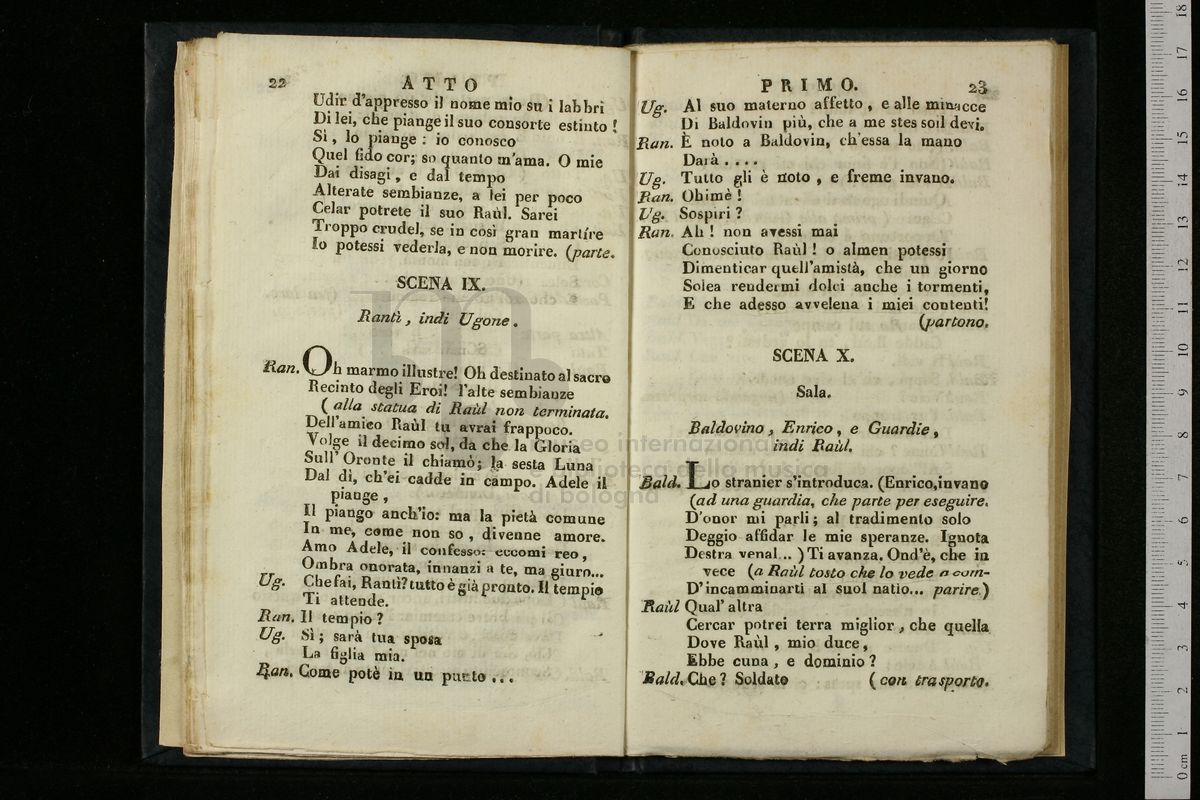 22 ATTO
Udir d'appresso il nome mio su i labbri
Di lei, che piange il suo consorte estinto !
Sì, lo piange : io conosco
Quel fido cor; so quanto m'ama. O mie
Dai disagi, e dal tempo
Alterate sembianze, a lei per poco
Celar potrete il suo Raùl. Sarei
Troppo crudel, se in così gran martíre
Io potessi vederla, e non morire. (parte.
SCENA IX.
Rantì, indi Ugone.
Ran. Oh marmo illustre! Oh destinato al sacro
Recinto degli Eroi! l'alte sembianze
( alla statua di Raùl non terminata.
Dell'amico Raùl tu avrai frappoco.
Volge il decimo sol, da che la Gloria
Sull' Oronte il chiamò; la sesta Luna
Dal dì, ch'ei cadde in campo. Adele il
piange,
Il piango anch'io: ma la pietà comune
In me, come non so, divenne amore.
Amo Adele, il confesso: eccomi reo,
Ombra onorata, innanzi a te, ma giuro...
Ug. Che fai, Rantì? tutto è già pronto. Il tempio
Ti attende.
Ran. Il tempio ?
Ug. Sì; sarà tua sposa
La figlia mia.
Ran. Come potè in un punto ...
PRIMO. 23
Ug. Al suo materno affetto, e alle minacce
Di Baldovin più, che a me stes soil devi.
Ran. È noto a Baldovin, ch'essa la mano
Darà ....
Ug. Tutto gli è noto, e freme invano.
Ran. Ohimè !
Ug. Sospiri ?
Ran. Ah ! non avessi mai
Conosciuto Raùl ! o almen potessi
Dimenticar quell'amistà, che un giorno
Solea rendermi dolci anche i tormenti,
E che adesso avvelena i miei contenti!
(partono.
SCENA X.
Sala.
Baldovino, Enrico, e Guardie,
indi Raùl.
Bald. Lo stranier s'introduca. (Enrico, invano
(ad una guardia, che parte per eseguire.
D'onor mi parli; al tradimento solo
Deggio affidar le mie speranze. Ignota
Destra venal... ) Ti avanza. Ond'è, che in
vece (a Raùl tosto che lo vede a com-
D'incamminarti al suol natìo... parire.)
Raùl Qual' altra
Cercar potrei terra miglior, che quella
Dove Raùl, mio duce,
Ebbe cuna, e dominio ?
Bald. Che ? Soldato ( con trasporto.
museo internazionale
e biblioteca della musica
di bologna
0 cm 1 2 3 4 5 6 7 8 9 10 11 12 13 14 15 16 17 18